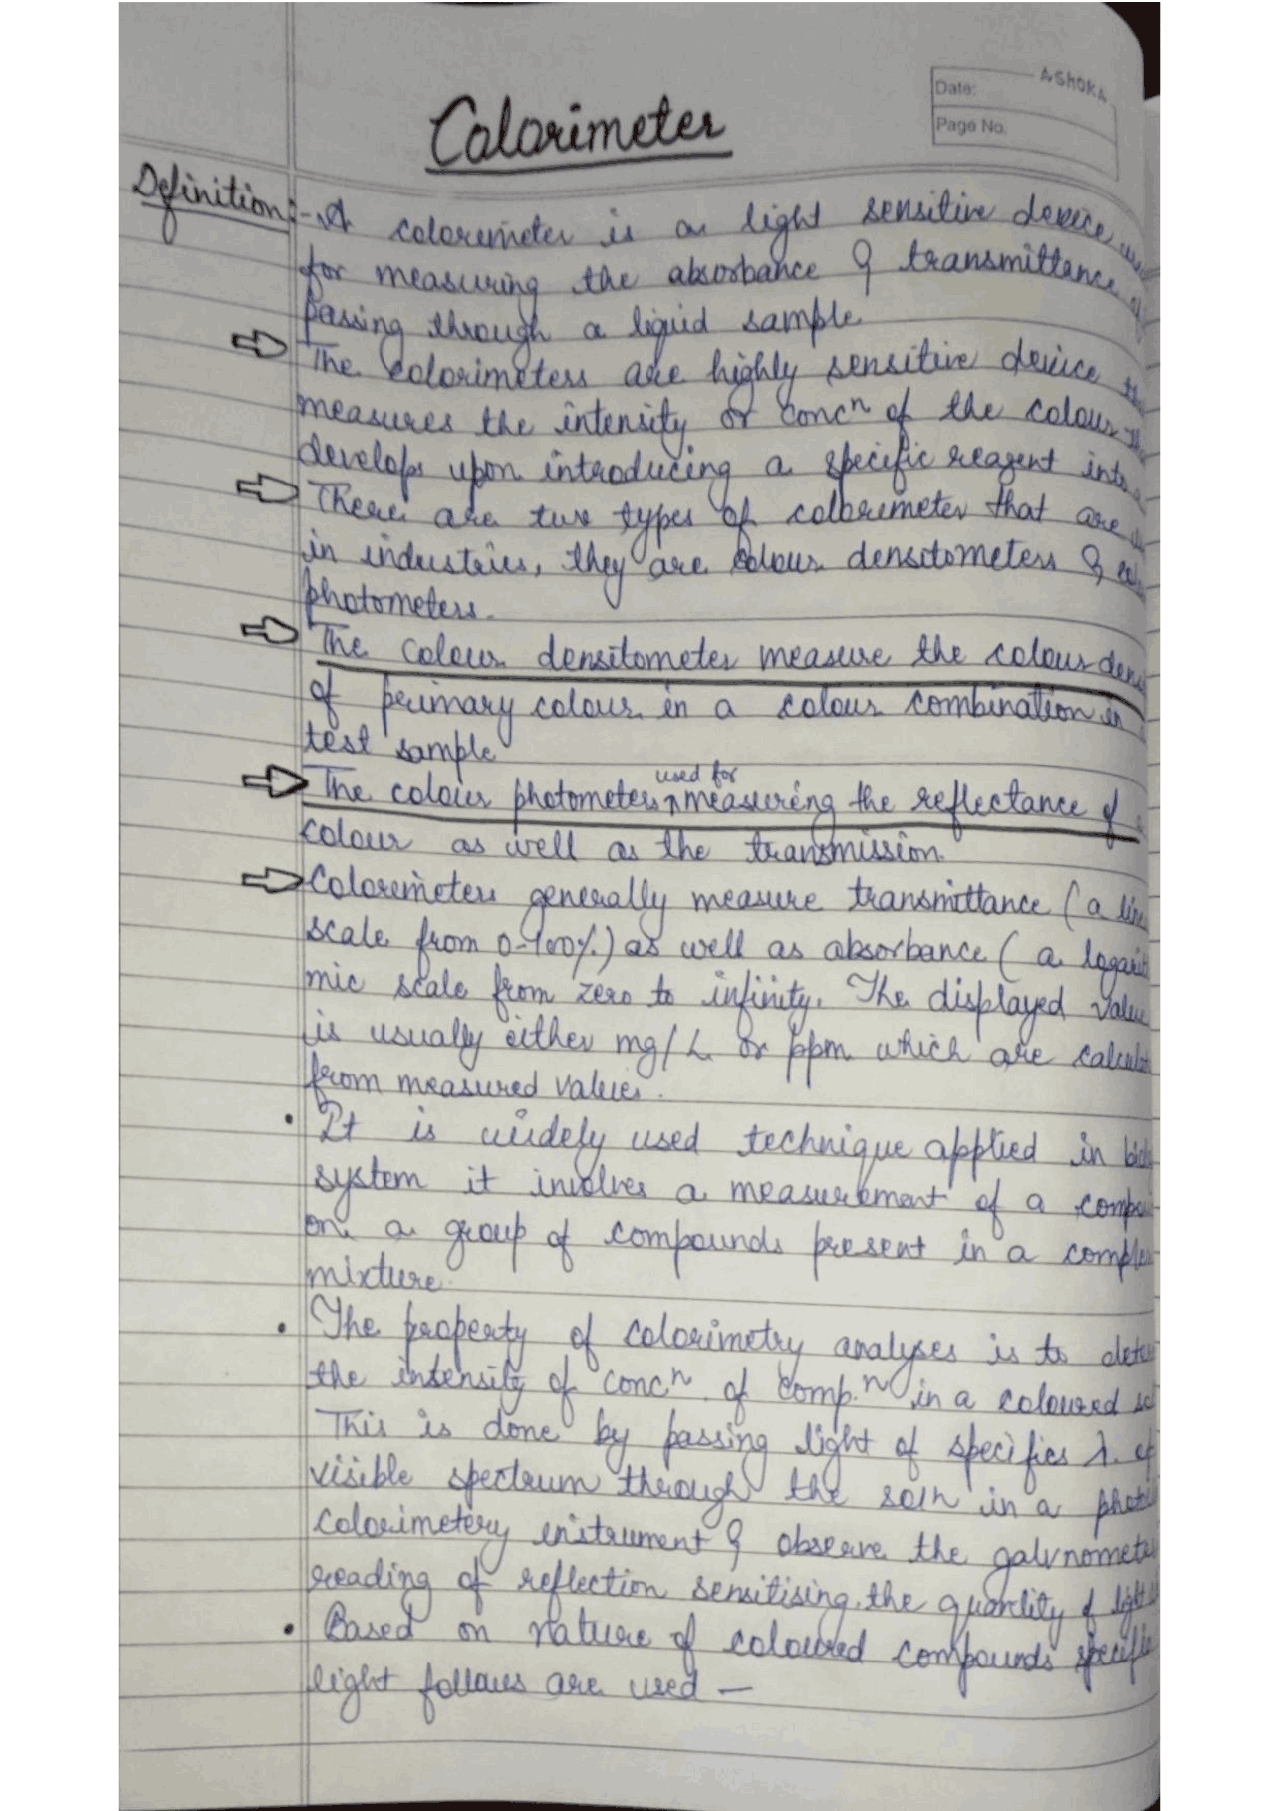 ASHOKA
Date:
Page No.
Colorimeter
Definition:- A colorimeter is a light sensitive device
for measuring the absorbance & transmittance
passing through a liquid sample
The colorimeters are highly sensitive device
measures the intensity or concn of the colour
develops upon introducing a specific reagent into
There are two types of colorimeter that are
in industries, they are colour densitometers &
photometers.
The colour densitometer measure the colour
of primary colour in a colour combination in
test sample
used for
The colour photometers measuring the reflectance of
colour as well as the transmission.
Colorimeters generally measure transmittance (a
scale from 0-100%) as well as absorbance ( a
mic scale from zero to infinity. The displayed value
is usually either mg/L or ppm which are
from measured values.
• It is widely used technique applied in
system it involves a measurement of a
on a group of compounds present in a
mixture.
• The property of colorimetry analyses is to
the intensity of concn. of comp.n in a coloured
This is done by passing light of specifies λ. of
visible spectrum through the soln in a
colorimetery instrument & observe the
reading of reflection sensitising the quantity of light
• Based on nature of coloured compounds
light follows are used —